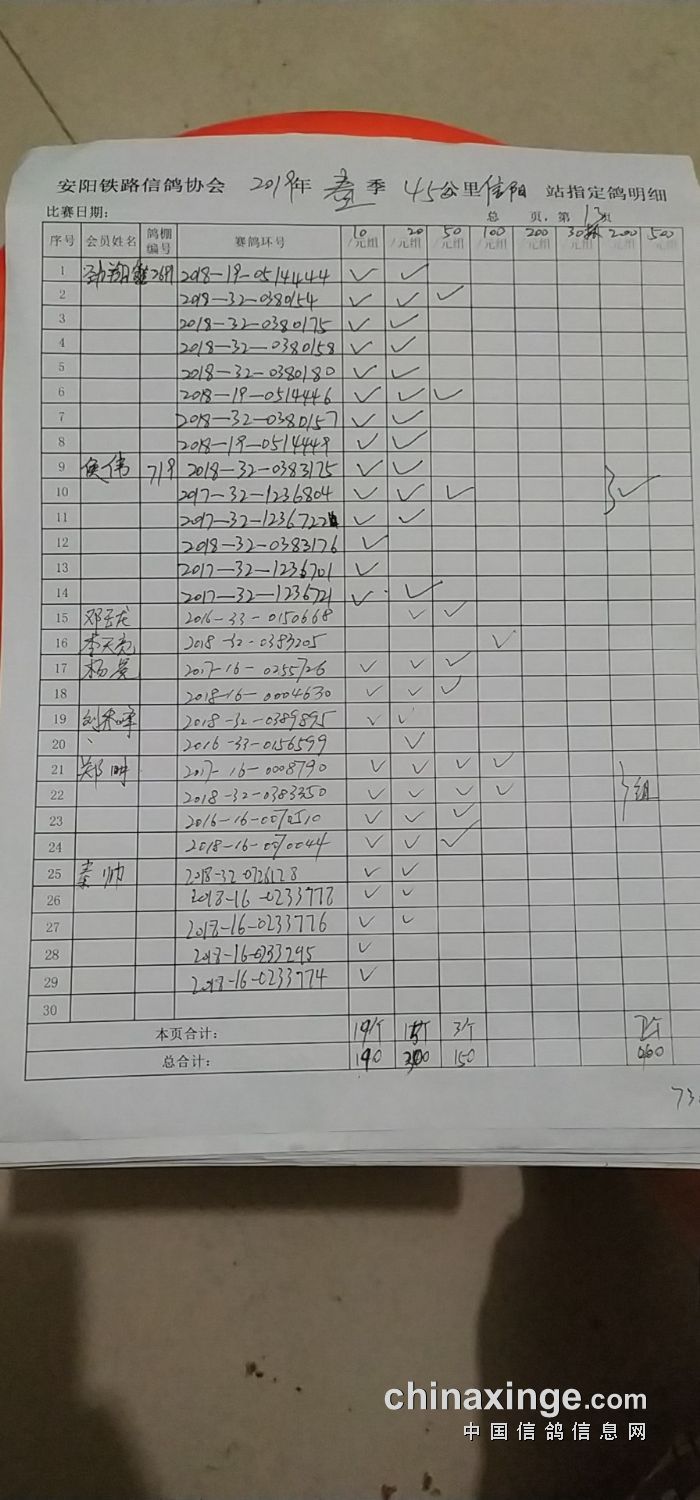 安阳铁路信鸽协会 2019年 春 季 45公里信阳 站指定鸽明细
比赛日期: 总 页,第 13 页
序号 会员姓名 鸽棚编号 赛鸽环号 10/元组 20/元组 50/元组 100/元组 200/元组 30/元组 200/元组 500/元组
1 2018-19-0514444 ✓ ✓
2 2018-32-0380154 ✓ ✓ ✓
3 2018-32-0380175 ✓ ✓
4 2018-32-0380158 ✓ ✓
5 2018-32-0380180 ✓ ✓
6 2018-19-0514446 ✓ ✓ ✓
7 2018-32-0380157 ✓ ✓
8 2018-19-0514449 ✓ ✓
9 侯伟 719 2018-32-0383175 ✓ ✓
10 2017-32-1236804 ✓ ✓ ✓ ✓
11 2017-32-1236722 ✓ ✓
12 2018-32-0383176 ✓
13 2017-32-1236701 ✓
14 2017-32-1236721 ✓ ✓
15 邓云龙 2016-33-0150668 ✓ ✓
16 李天亮 2018-32-0383205 ✓
17 杨景 2017-16-0255726 ✓ ✓ ✓
18 2018-16-0004630 ✓ ✓ ✓
19 2018-32-0389895 ✓ ✓
20 2016-33-0156599 ✓
21 郑明 2017-16-0008790 ✓ ✓ ✓ ✓
22 2018-32-0383350 ✓ ✓ ✓ ✓ 组
23 2016-16-0070510 ✓ ✓ ✓
24 2018-16-0070044 ✓ ✓ ✓
25 秦帅 2018-32-0726128 ✓ ✓
26 2018-16-0233778 ✓ ✓
27 2018-16-0233776 ✓ ✓
28 2018-16-0233295 ✓
29 2018-16-0233774 ✓
30
本页合计: 19个 15个 3个
总合计: 190 300 150
chinaxinge.com
中国信鸽信息网